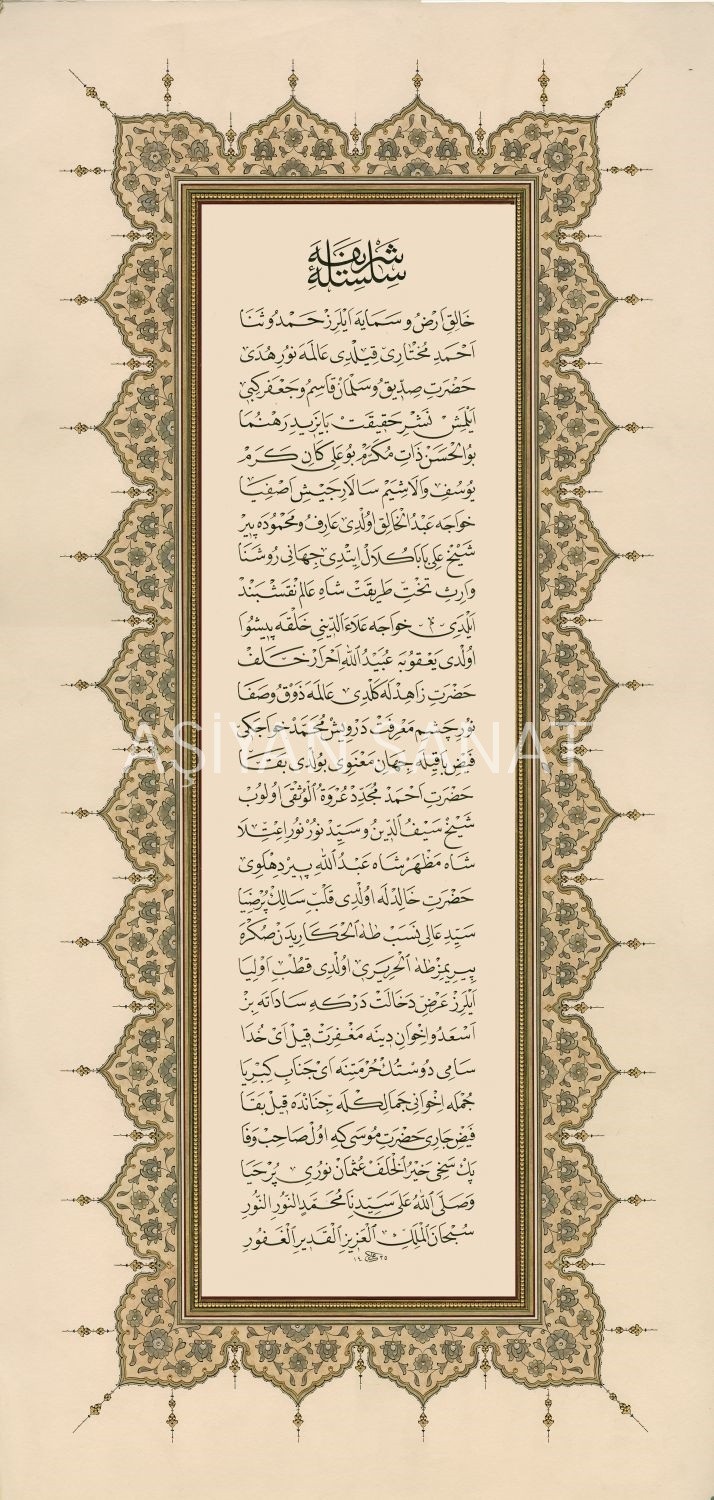 سلسله شريفه
خَالِقِ اَرْضُ و سَمَايَه اَيْلَرِزْ حَمْدُ و ثَنَا
اَحْمَدِ مُخْتَارِى قِيلْدِى عَالَمَه نُورِ هُدَى
حَضْرَتِ صِدِّيقُ و سَلْمَانْ قَاسِمُ و جَعْفَر كِبِى
اَيْلَمِشْ نَشْرِ حَقِيقَتْ بَايَزِيدِ رَهْنُمَا
بُو الْحَسَنْ ذَاتِ مُكَرَّمْ بُو عَلِى كَانِ كَرَمْ
يُوسُفِ وَالَا شِيَمْ سَالَارِ جَيْشِ اَصْفِيَا
خواجه عَبْدُ الْخَالِقْ اُولْدِى عَارِفُ و مَحْمُودَه پِيرْ
شَيْخْ عَلِى بَابَا كُلَالْ اِيتْدِى جِهَانِى رُوشَنَا
وَارِثِ تَخْتِ طَرِيقَتْ شَاهِ عَالَمْ نَقْشْبَنْد
اَيْلَدِى خواجه عَلَاءَ الدِّينِى خَلْقَه پِيشْوَا
اُولْدِى يَعْقُوبَه عُبَيْدُ اللّٰهِ اَحْرَارْ خَلَفْ
حَضْرَتِ زَاهِدْلَه گَلْدِى عَالَمَه ذَوْقُ و صَفَا
نُورِ چَشْمِ مَعْرِفَتْ دَرْوِيشْ مُحَمَّدْ خواجگِى
فَيْضِ بَاقِيلَه جِهَانِ مَعْنَوِى بُولْدِى بَقَا
حَضْرَتِ اَحْمَدْ مُجَدِّدْ عُرْوَةُ الْوُثْقَى اُولُوبْ
شَيْخْ سَيْفُ الدِّينُ و سَيِّدْ نُورْ نُورِ اِعْتِلَا
شَاه مَظْهَرْ شَاه عَبْدُ اللّٰهِ پِيرِ دِهْلَوِى
حَضْرَتِ خَالِدْلَه اُولْدِى قَلْبِ سَالِكْ پُرْ ضِيَا
سَيِّدِ عَالِى نَسَبْ طٰهَ الْحَكَّارِيدَنْ صُكْرَه
پِيرِيمِزْ طٰهَ الْحَرِيرِى اُولْدِى قُطْبِ اَوْلِيَا
اَيْلَرِزْ عَرْضِ دَخَالَتْ دَرْكَهِ سَادَاتَه بِزْ
اَسْعَدُ و اِخْوَانِ دِينَه مَغْفِرَتْ قِيلْ اَىْ خُدَا
سَامِى دُوسْتُكْ حُرْمَتِنَه اَىْ جَنَابِ كِبْرِيَا
جُمْلَه اِخْوَانِى جَمَالِكْلَه جِنَانْدَه قِيلْ بَقَا
فَيْضِ جَارِى حَضْرَتِ مُوسَى كِه اُولْ صَاحِبْ وَفَا
پَكْ سَخِى خَيْرُ الْخَلَفْ عُثْمَانْ نُورِى پُرْ حَيَا
وَصَلَّى اللّٰهُ عَلَى سَيِّدِنَا مُحَمَّدٍ النُّورِ النُّورِ
سُبْحَانَ الْمَلِكِ الْعَزِيزِ الْقَدِيرِ الْغَفُورِ
١٤٣٥
AŞİYAN SANAT